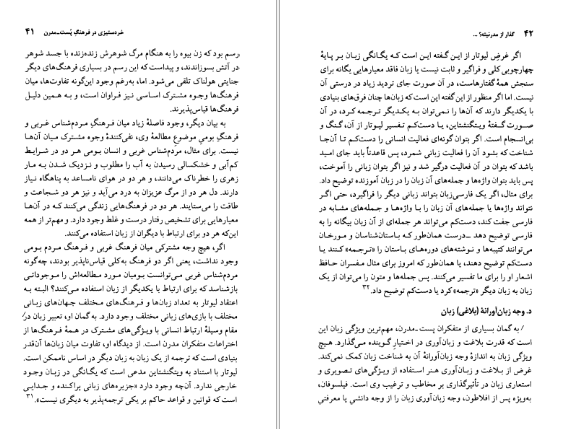 خردستیزی در فرهنگ پُست‌ـمدرن ۴۱
رسم بود که زن بیوه را به هنگام مرگ شوهرش زنده‌زنده با جسد شوهر
در آتش بسوزانند، و پیداست که این رسم در بسیاری فرهنگ‌های دیگر
جنایتی هولناک تلقی می‌شود. اما، به‌رغم وجود این‌گونه تفاوت‌ها، میان
فرهنگ‌ها وجوه مشترک اساسی نیز فراوان است، و به همین دلیل
فرهنگ‌ها قیاس‌پذیرند.
به بیان دیگر، وجود فاصلهٔ زیاد میان فرهنگِ مردم‌شناس غربی و
فرهنگِ بومیِ موضوعِ مطالعهٔ وی، نفی‌کنندهٔ وجوه مشترک میان آن‌ها
نیست. برای مثال، مردم‌شناس غربی و انسان بومی هر دو در شرایط
کم‌آبی و خشکسالی رسیدن به آب را مطلوب و نزدیک شدن به مار
زهری را خطرناک می‌دانند، و هر دو در هوای نامساعد به پناهگاه نیاز
دارند. دل هر دو از مرگ عزیزان به درد می‌آید و نیز هر دو شجاعت و
طاقت را می‌ستایند. هر دو در فرهنگ‌هایی زندگی می‌کنند که در آن‌ها
معیارهایی برای تشخیص رفتار درست و غلط وجود دارد. و مهم‌تر از همه
این‌که هر دو برای ارتباط با دیگران از زبان استفاده می‌کنند.
اگر، هیچ وجه مشترکی میان فرهنگ غربی و فرهنگ مردم بومی
وجود نداشت، یعنی اگر دو فرهنگ به‌کلی قیاس‌ناپذیر بودند، چه‌گونه
مردم‌شناس غربی می‌توانست بومیان مورد مطالعه‌اش را موجوداتی
بازشناسد که برای ارتباط با یکدیگر از زبان استفاده می‌کنند؟ البته به
اعتقاد لیوتار به تعداد زبان‌ها و فرهنگ‌های مختلف جهان‌های زبانی
مختلف با بازی‌های زبانی مختلف وجود دارد. به گمان او، تعبیر زبان در
مقام وسیلهٔ ارتباط انسانی با ویژگی‌های مشترک در همهٔ فرهنگ‌ها از
اختراعات متفکران مدرن است. از دیدگاه او، تفاوت میان زبان‌ها آن‌قدر
بنیادی است که ترجمه از یک زبان به زبان دیگر در اساس ناممکن است.
لیوتار با استناد به ویتگنشتاین مدعی است که یگانگی در زبان وجود
خارجی ندارد. آن‌چه وجود دارد «جزیره‌های زبانی پراکنده و جدایی
است که قوانین و قواعد حاکم بر یکی ترجمه‌پذیر به دیگری نیست».۳۱
۴۲ گذار از مدرنیته؟ ...
اگر غرضِ لیوتار از این گفته این است که یگانگی زبان بر پایهٔ
چهارچوبی کلی و فراگیر و ثابت نیست یا زبان فاقد معیارهایی یگانه برای
سنجش همهٔ گفتارهاست، در آن صورت جای تردید زیاد در درستی آن
نیست. اما اگر منظور از این گفته این است که زبان‌ها چنان فرق‌های بنیادی
با یکدیگر دارند که آن‌ها را نمی‌توان به یکدیگر ترجمه کرد، در آن
صورت گفتهٔ ویتگنشتاین، یا دست‌کم تفسیر لیوتار از آن، گنگ و
بی‌انسجام است. اگر بتوان گونه‌ای فعالیت انسانی را دست‌کم تا آن‌جا
شناخت که بشود آن را فعالیت زبانی شمرد، پس قاعدتاً باید جای امید
باشد که بتوان در آن فعالیت درگیر شد و نیز اگر بتوان زبانی را آموخت،
پس باید بتوان واژه‌ها و جمله‌های آن زبان را در زبان آموزنده توضیح داد.
برای مثال، اگر یک فارسی‌زبان بتواند زبانی دیگر را فراگیرد، حتی اگر
نتواند واژه‌ها یا جمله‌های آن زبان را با واژه‌ها و جمله‌های مشابه در
فارسی جفت کند، دست‌کم می‌تواند هر جمله‌ای از آن زبان بیگانه را به
فارسی توضیح دهد ــ‌درست همان‌طور که باستان‌شناسان و مورخان
می‌توانند کتیبه‌ها و نوشته‌های دوره‌های باستان را «ترجمه» کنند یا
دست‌کم توضیح دهند، یا همان‌طور که امروز برای مثال مفسران حافظ
اشعار او را برای ما تفسیر می‌کنند. پس جمله‌ها و متون را می‌توان از یک
زبان به زبان دیگر «ترجمه» کرد یا دست‌کم توضیح داد.۳۲
د. وجه زبان‌آورانهٔ (بلاغی) زبان
به گمان بسیاری از متفکران پست‌ـمدرن، مهم‌ترین ویژگی زبان این
است که قدرت بلاغت و زبان‌آوری در اختیار گوینده می‌گذارد. هیچ
ویژگی زبان به اندازهٔ وجه زبان‌آورانهٔ آن به شناخت زبان کمک نمی‌کند.
غرض از بلاغت و زبان‌آوری هنر استفاده از ویژگی‌های تصویری و
استعاری زبان در تأثیرگذاری بر مخاطب و ترغیب وی است. فیلسوفان،
به‌ویژه پس از افلاطون، وجه زبان‌آوری زبان را از وجه دانشی یا معرفتی